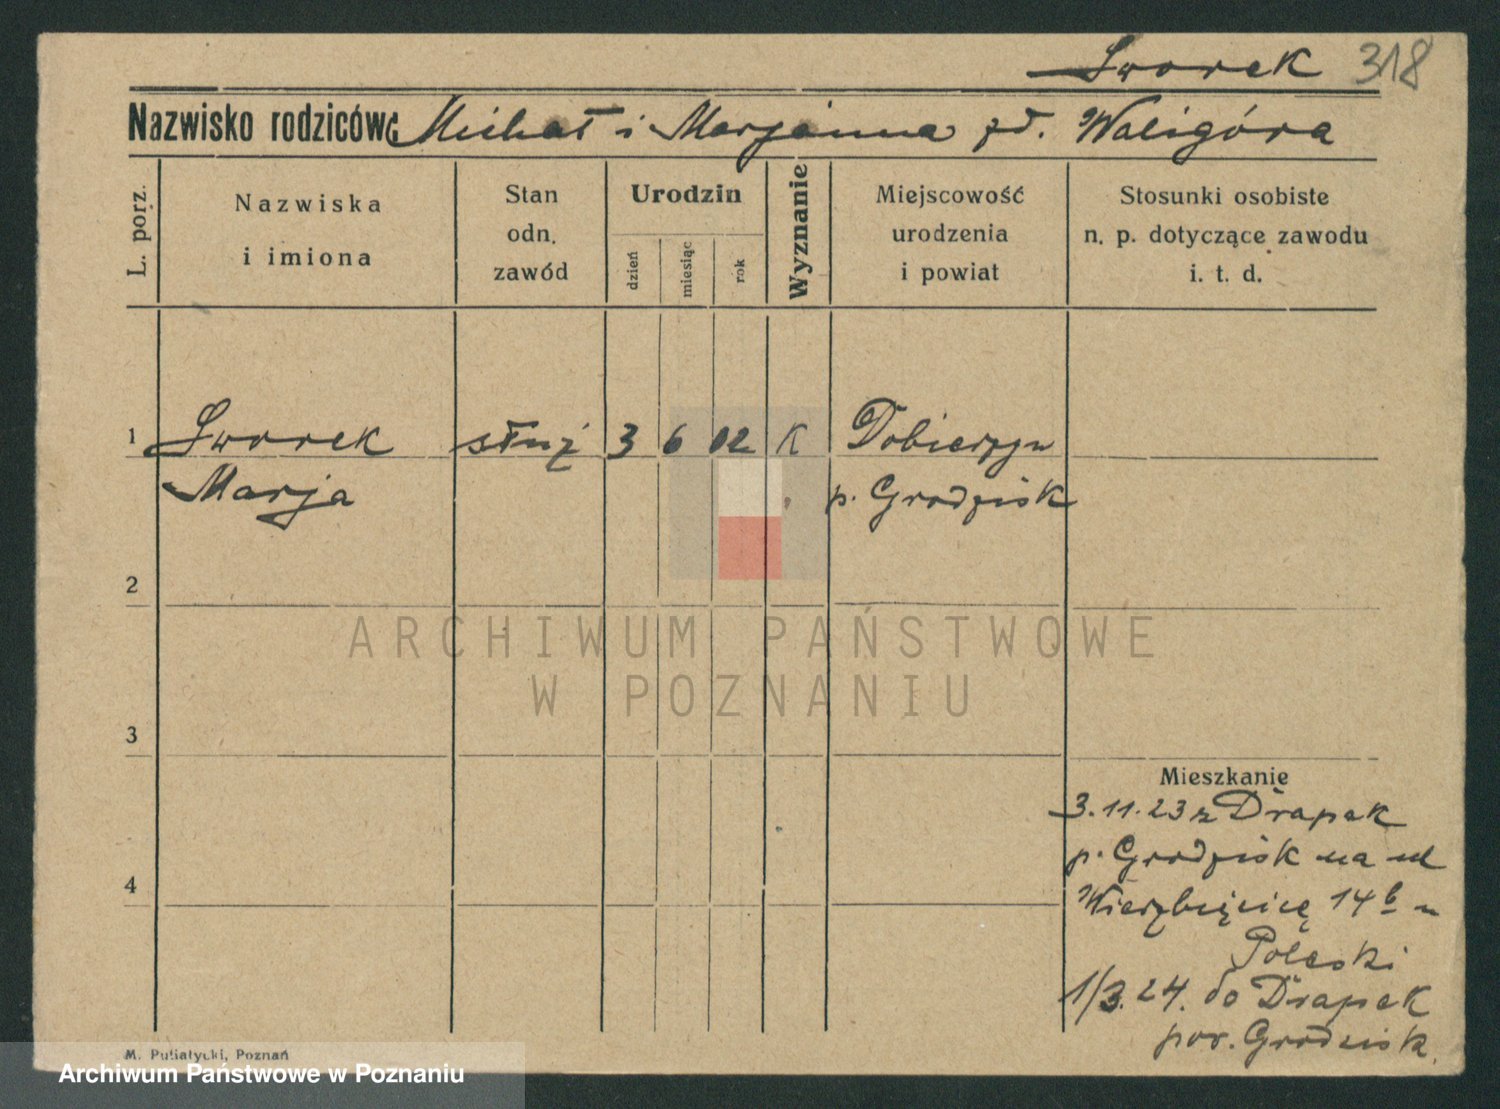 Sworek 318
Nazwisko rodziców: Michał i Marjanna zd. Waligóra
L. porz.
Nazwiska
i imiona
Stan
odn.
zawód
Urodzin
dzień
miesiąc
rok
Wyznanie
Miejscowość
urodzenia
i powiat
Stosunki osobiste
n. p. dotyczące zawodu
i. t. d.
1 Sworek służ 3 6 02 K Dobieżyn
Marja p. Grodzisk
2
3
4
Mieszkanie
3.11.23 z Drapak
p. Grodzisk na ul
Wierzbięcice 14b u
Poleski
1/3.24. do Drapak
pow. Grodzisk.
M. Putiatycki, Poznań
ARCHIWUM PAŃSTWOWE
W POZNANIU
Archiwum Państwowe w Poznaniu